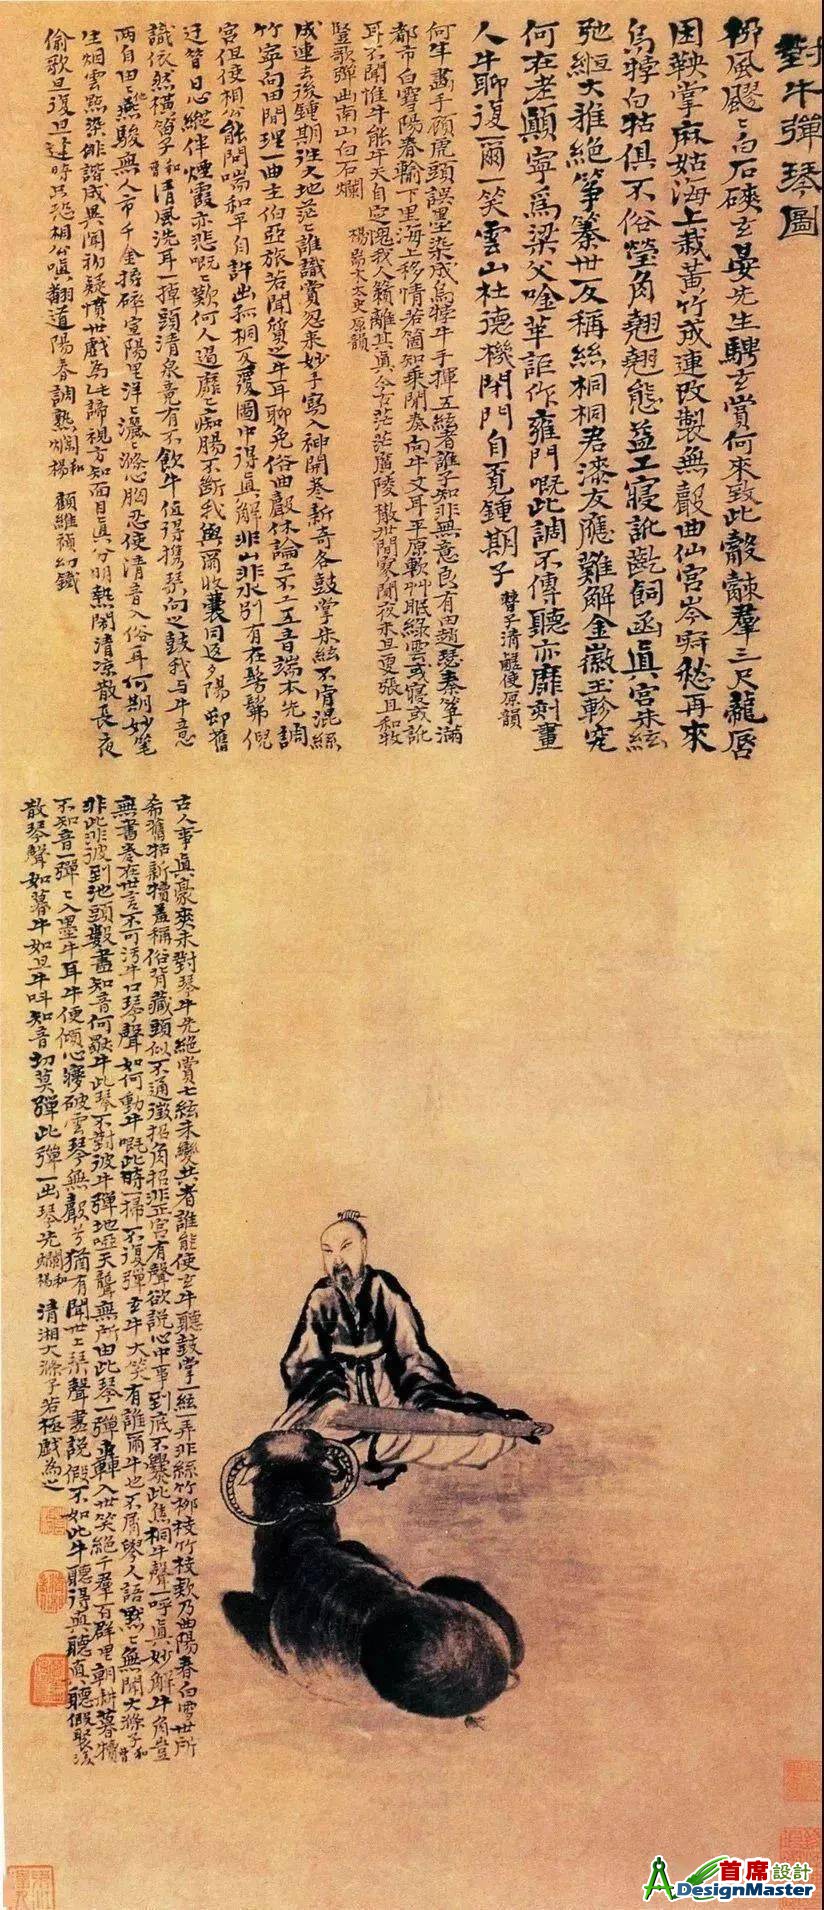 對牛彈琴圖
柳風颼〻白石硤玄晏先生騁玄賞何來致此觳觫羣三尺龍唇
困鞅掌麻姑海上栽黃竹成連改製無聲曲仙宮岑寂愁再來
烏犉白牯俱不俗瑩角翹翹態益工寢訛齕飼函真宮朱絃
弛絙大雅絕箏䈅世反稱絲桐桐君漆友應難解金徽玉軫究
何在老顛寧為梁父唫莘詎作雍門嘅此調不傳聽亦靡刻畫
人牛聊復爾一笑雲山杜德機閉門自覓鍾期子 楝子清鹺使原韻
何年畫手顧虎頭誤墨染成烏犉牛手揮五絃者誰子知非無意良有由趙瑟秦箏滿
都市白雪陽春翻下里海上移情若箇知乘閒奏向牛丈耳平原軟艸眠綠雲或寢或訛
耳不聞惟牛能牛天自定愧我人籟離其真今古茫茫廣陵撒世間寥闃夜未旦更張且和牧
豎歌彈幽南山白石爛 楊耑木太史原韻
成連去後鍾期往大地茫〻誰識賞忽來妙手寫入神開卷新奇各鼓掌朱絃不肯混絲
竹寧向田間理一曲主伯亞旅若聞質之牛耳聊免俗曲聲休論工不工五音端本先調
宮但使相公能問喘和平自許出孤桐反覆圖中得真解非山非水別有在髣髴倪
迂昔日心縱伴煙霞亦悲嘅〻歎何人過靡〻痴腸不斷我與爾收囊同返夕陽邨舊
識依然橫笛子 和 清風洗耳一掉頭清泉竟有不飲牛值得攜琴向之鼓我与牛意
兩自由燕駿無人市千金摔碎宣陽里洋〻灑〻滌心胸忍使清音入俗耳何期妙笔
生烟雲點染俳諧成異聞初疑憤世戲為此諦視方知面目真分明熱鬧清凉散長夜
偷歌旦復旦違時只恐相公嗔翻道陽春調熟爛 和楊 顧維禎幻鐵
古人事真豪爽未對琴牛先絕賞七絃未變共者誰能使玄牛聽鼓掌一絃一弄非絲竹柳枝竹枝欸乃曲陽春白雪世所
希舊牯新犢蓋稱俗背藏頭似不通徵招角招非正宮有聲欲說心中事到底不爨此焦桐牛聲一呼真妙解牛角豈
無書卷在世言不可污牛口琴聲如何動牛嘅此時一掃不復彈玄牛大笑有誰爾牛也不屑學人語默〻無聞大滌子 和曹
非此非彼到池頭數盡知音何獨牛此琴不對彼牛彈地啞天聾無所由此琴一彈轟入世笑絕千羣百群里朝耕暮犢
不知音一彈〻入墨牛耳牛便傾心夢破雲琴無聲兮猶有聞世上琴聲盡說假不如此牛聽得真聽真聽假聚復
散琴聲如暮牛如旦牛叫知音切莫彈此彈一出琴先爛 和楊 清湘大滌子若極戲為之
首席設計
DesignMaster